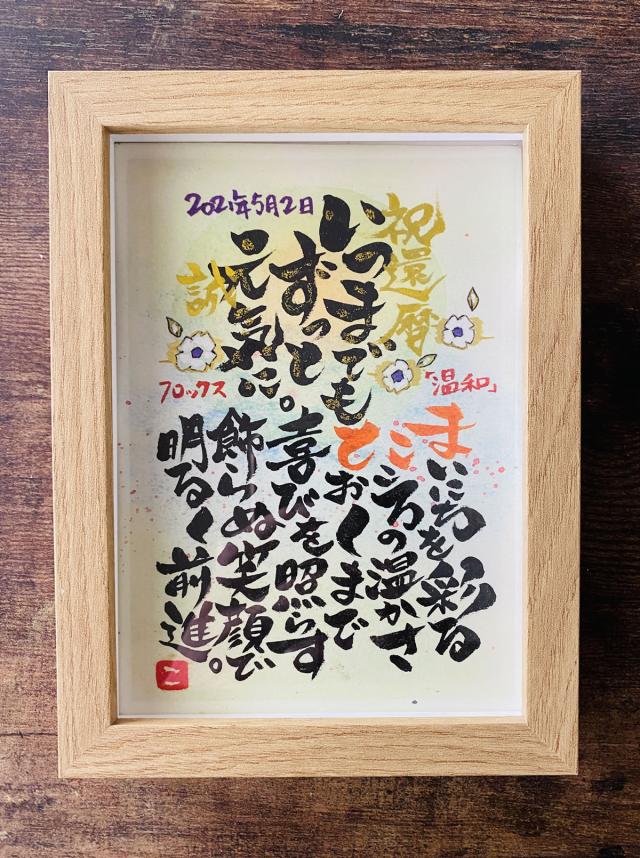 祝還暦
いつまでも
ずっと
元気に。
2021年5月2日
誠
「温和」
フロックス
まいにちを彩る
こころの温かさ
とおくまで
喜びを照らす
飾らぬ笑顔で
明るく前進。
こ